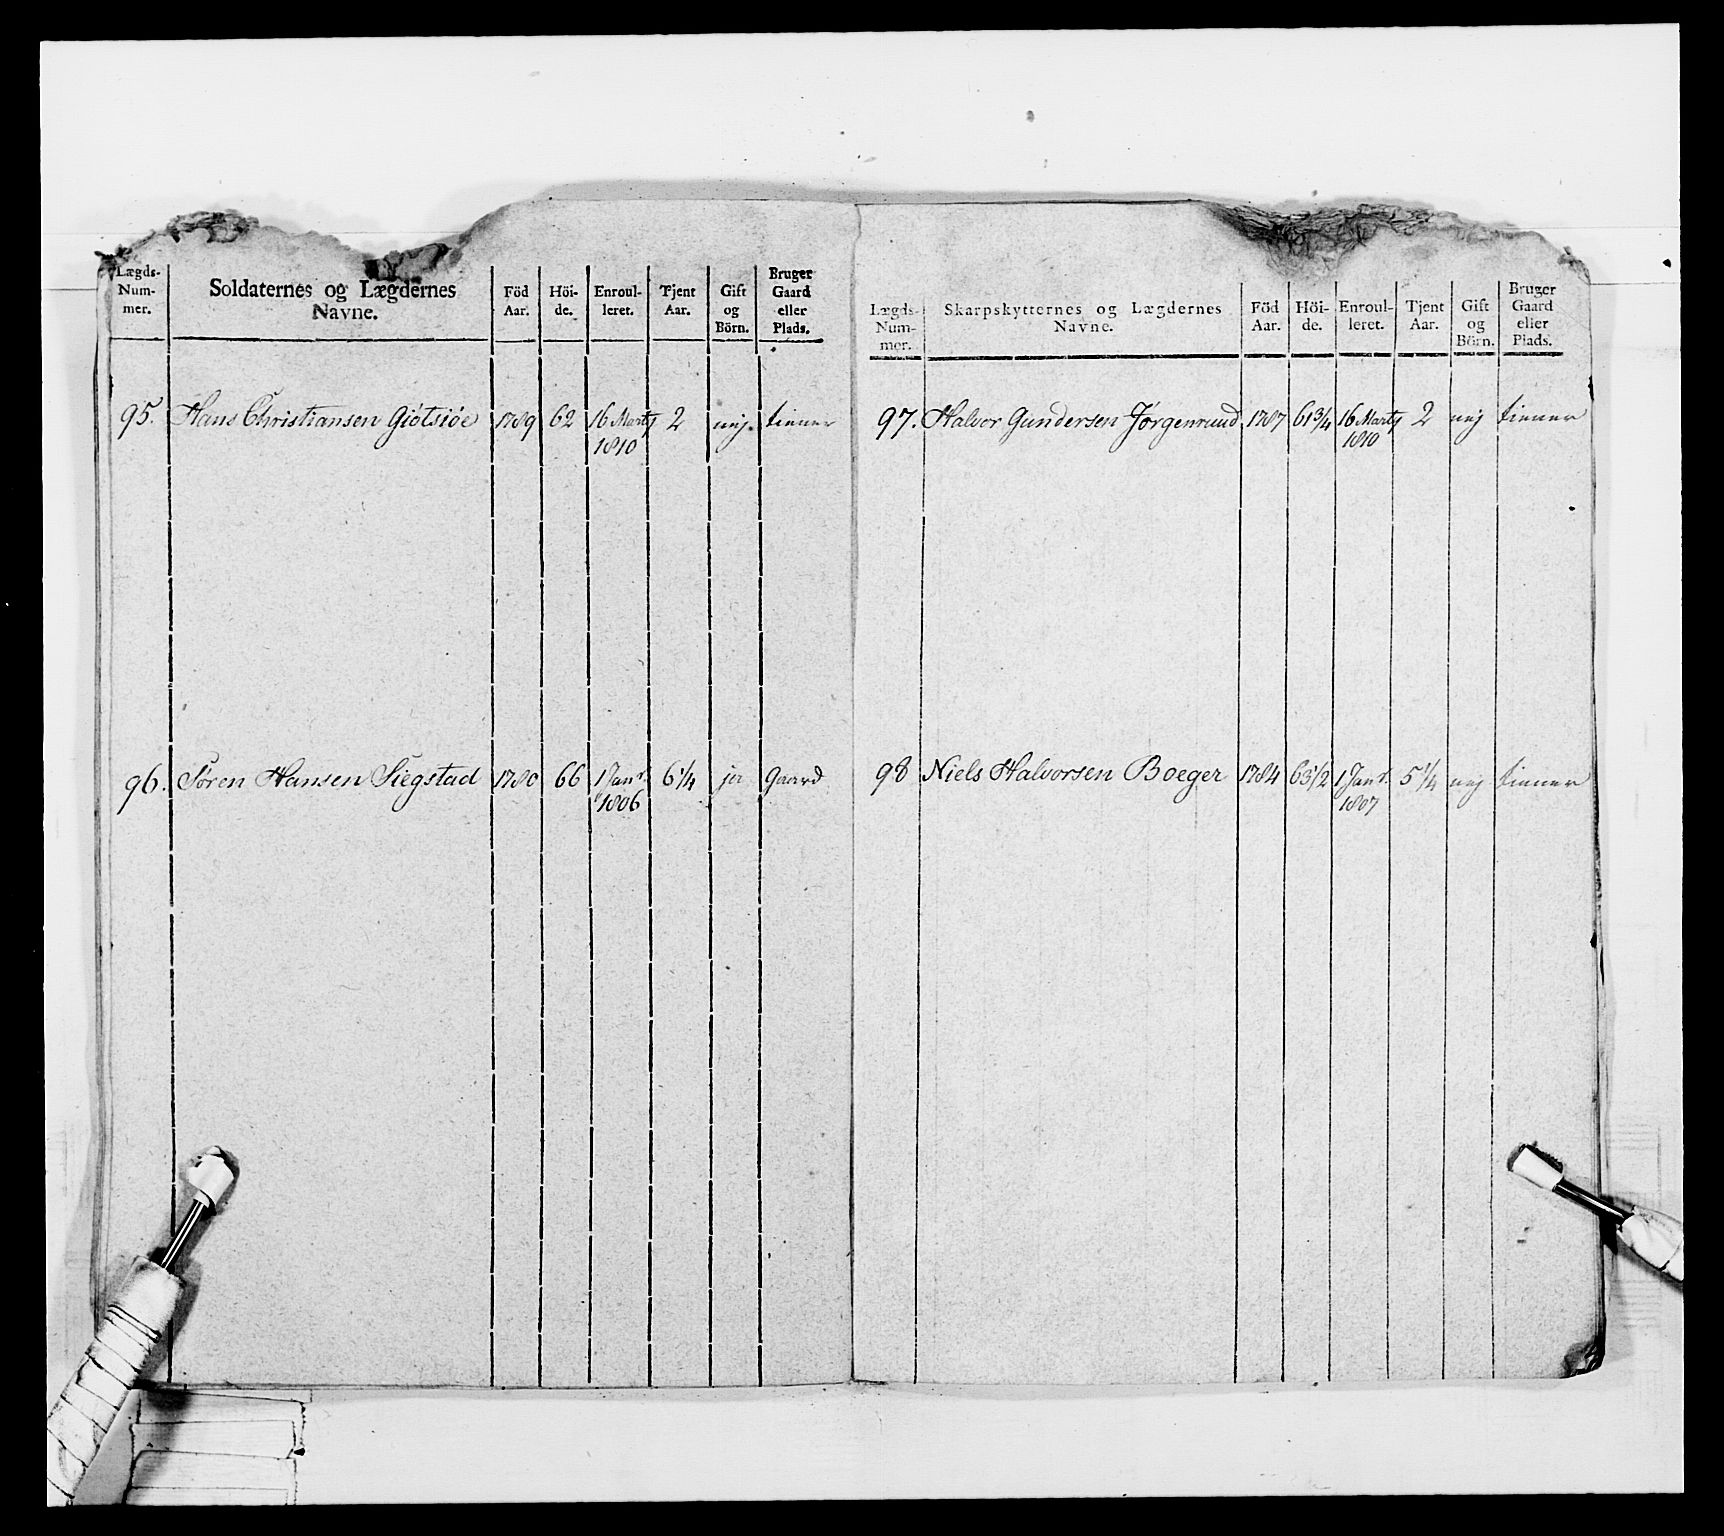 Lægds-Num-mer. Soldaternes og Lægdernes Navne. Föd Aar. Höi-de. Enroul-leret. Tjent Aar. Gift og Börn. Bruger Gaard eller Plads.
95. Hans Christiansen Giötsiöe 1789 62 16 Marty 2 nej. tiener
1810
96. Sören Hansen Siegstad 1780 66 1 Janr. 6 1/4 ja Gaard
1806
Lægds-Num-mer. Skarpskytternes og Lægdernes Navne. Föd Aar. Höi-de. Enroul-leret. Tjent Aar. Gift og Börn. Bruger Gaard eller Plads.
97. Halvor Gundersen Jörgenrund 1787 61 3/4 16 Marty 2 nej tiener
1810
98 Niels Halvorsen Boeger 1784 63 1/2 1 Janr. 5 1/4 nej tiener
1807